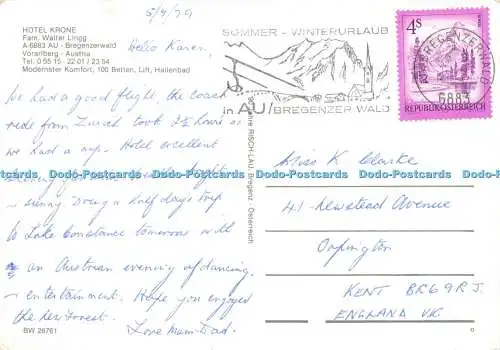 5/9/79
HOTEL KRONE
Fam. Walter Lingg
A-6883 AU - Bregenzerwald
Vorarlberg - Austria
Tel. 0 55 15 - 22 01 / 23 54
Modernster Komfort, 100 Betten, Lift, Hallenbad
Hello Karen.
We had a good flight, the coach
ride from Zurich took 2½ hours so
we had a nap. Hotel excellent
sunny. Doing a half days trip
to Lake Constance tomorrow with
an Austrian evening of dancing.
entertainment. Hope you enjoyed
the New Forest.
Love Mum & Dad.
BW 26761
RISCH-LAU, Bregenz - Österreich
SOMMER - WINTERURLAUB
in AU / BREGENZER WALD
4S
REPUBLIK ÖSTERREICH
BREGENZERWALD
6883
Miss K Clarke
41 Newstead Avenue
Orpington
KENT BR6 9RJ.
ENGLAND UK
Dodo-Postcards Dodo-Postcards Dodo-Postcards Dodo-Postcards